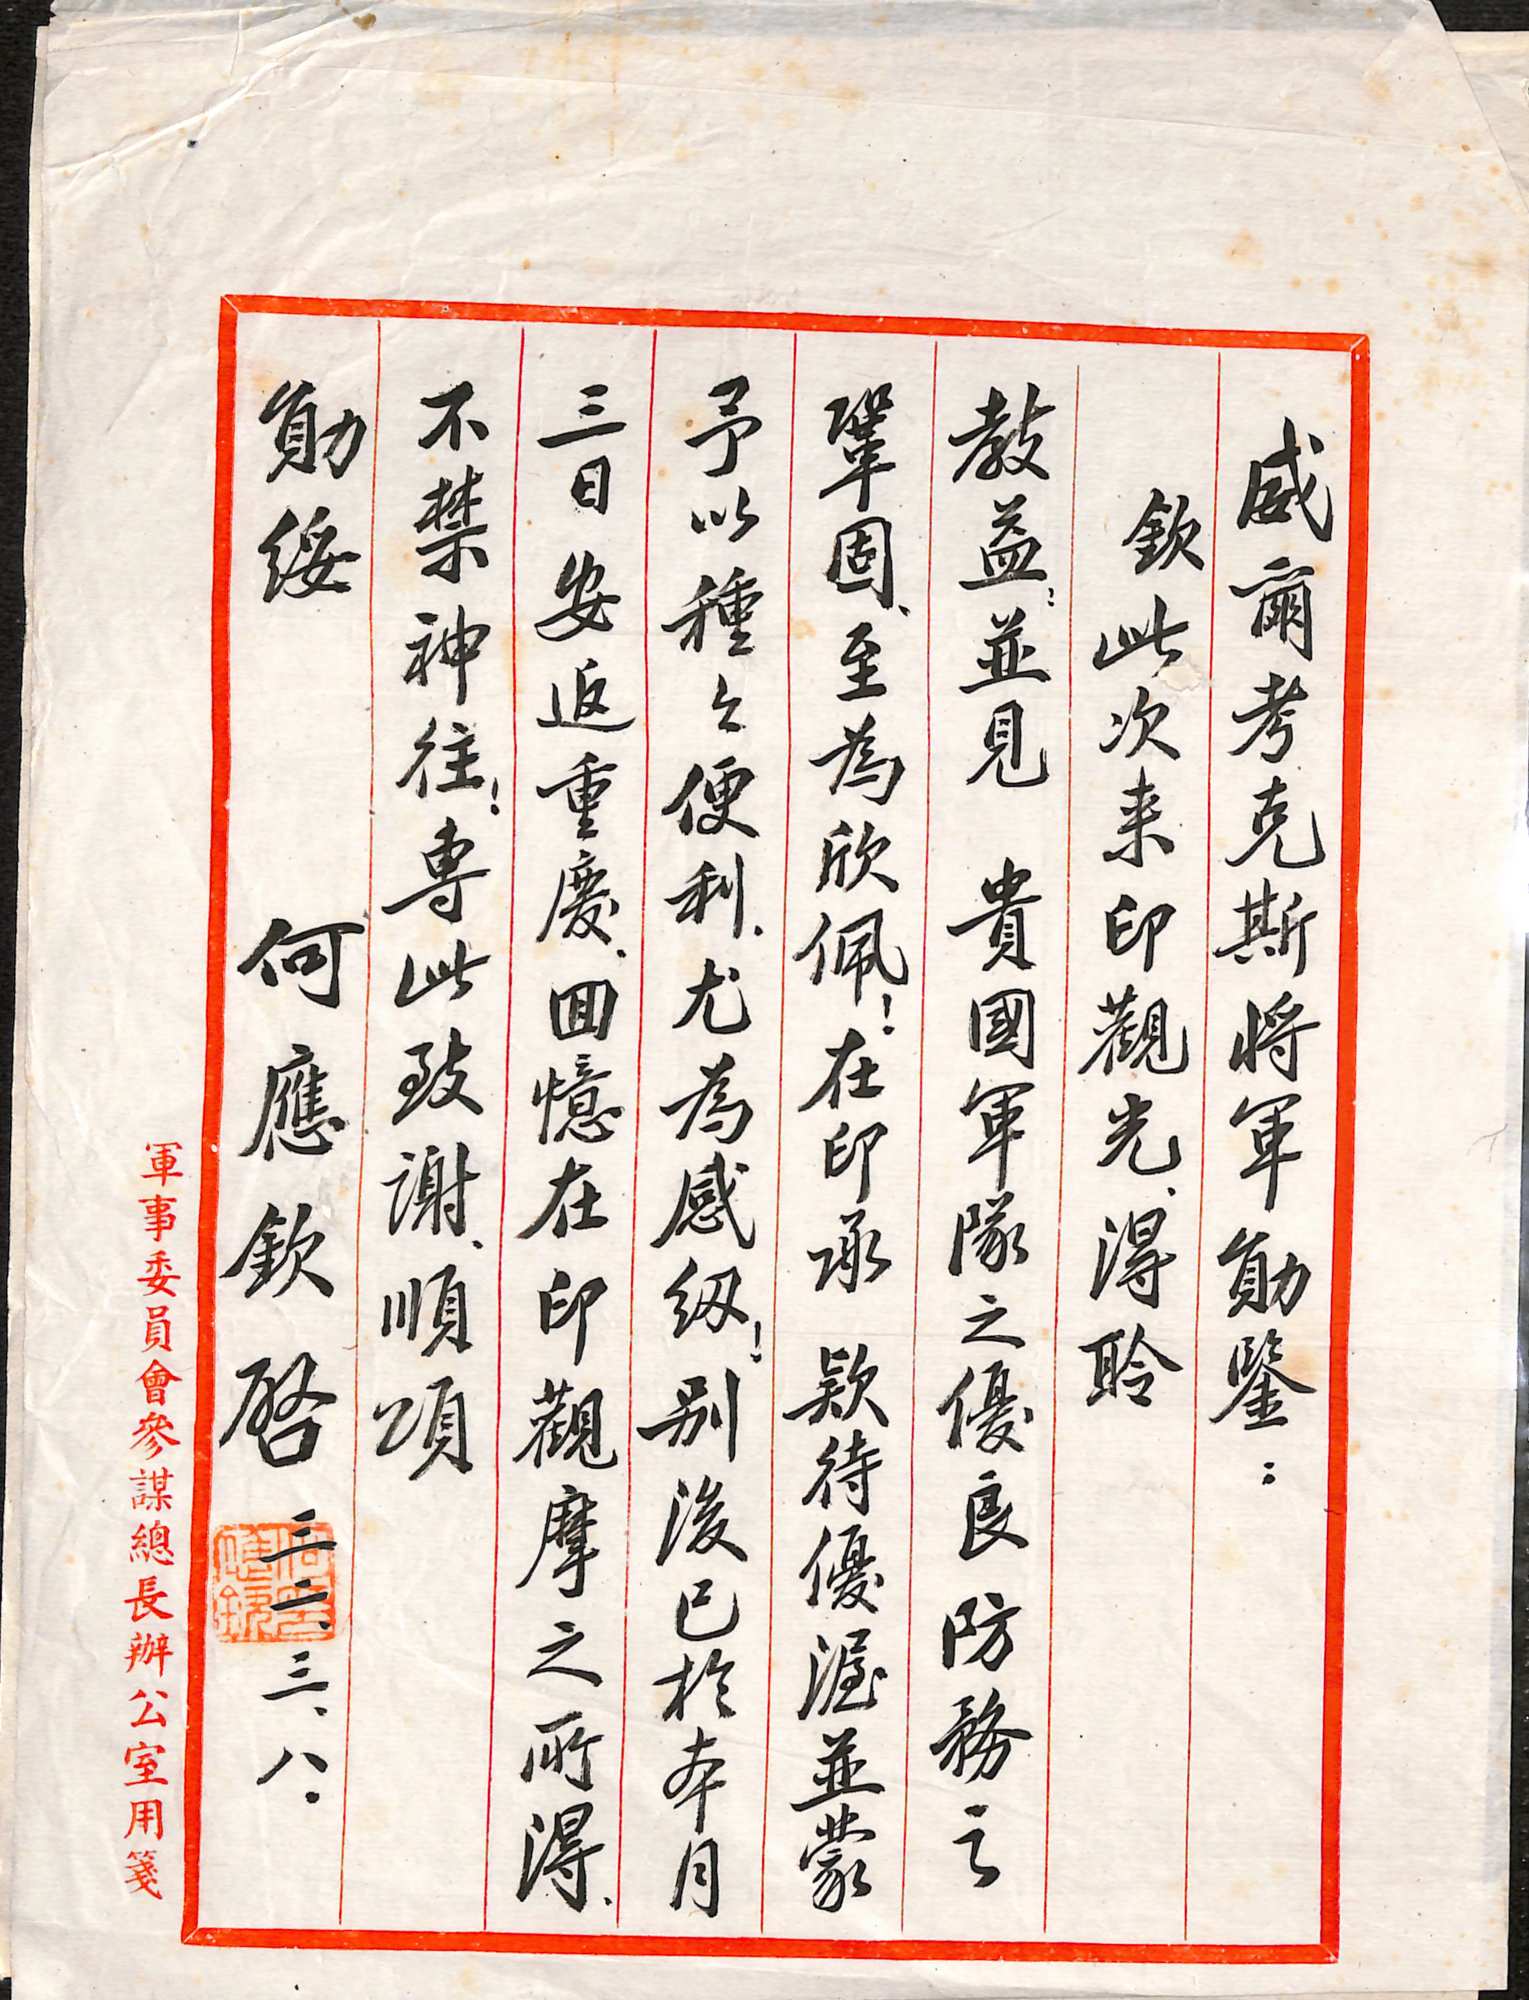 威爾考克斯將軍勛鑒：
欽此次来印觀光、得聆
教益；並見　貴國軍隊之優良防務之
鞏固、至為欣佩！在印承　款待優渥並蒙
予以種々便利、尤為感紉！別後已於本月
三日安返重慶、回憶在印觀摩之所得、
不禁神往！專此致謝、順頌
勛綏
何應欽啓 三二、三、八。
何應欽印
軍事委員會參謀總長辦公室用箋